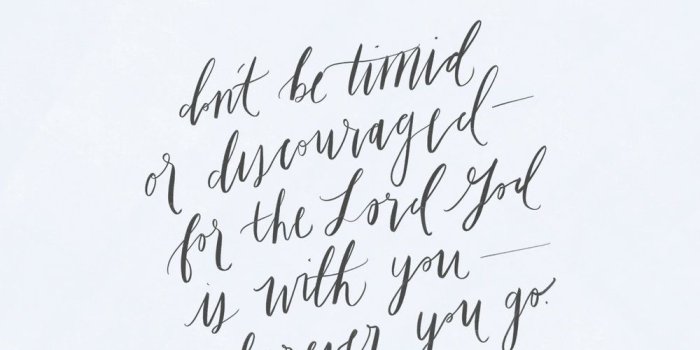 don't be timid
or discouraged—
for the Lord God
is with you —
you go.